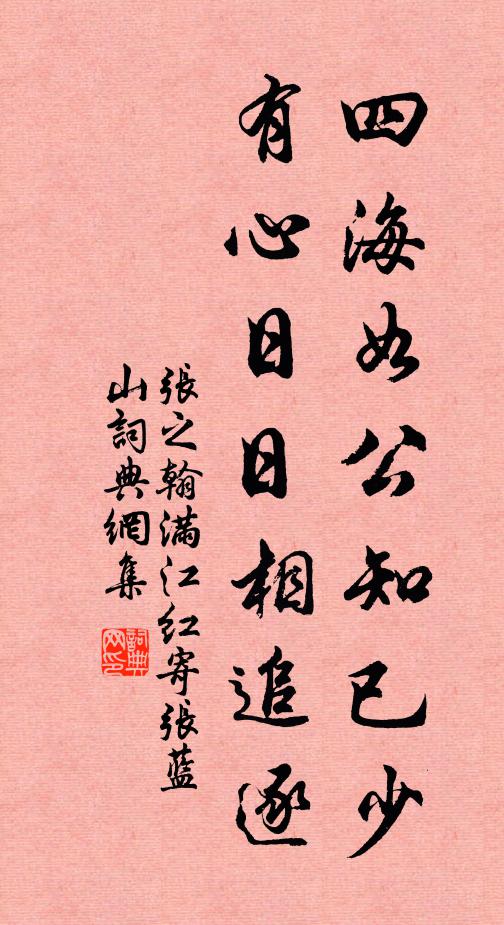 四海如公知已少
有心日日相追逐
張之翰滿江紅寄張藍
山詞典網集
詞典
网印